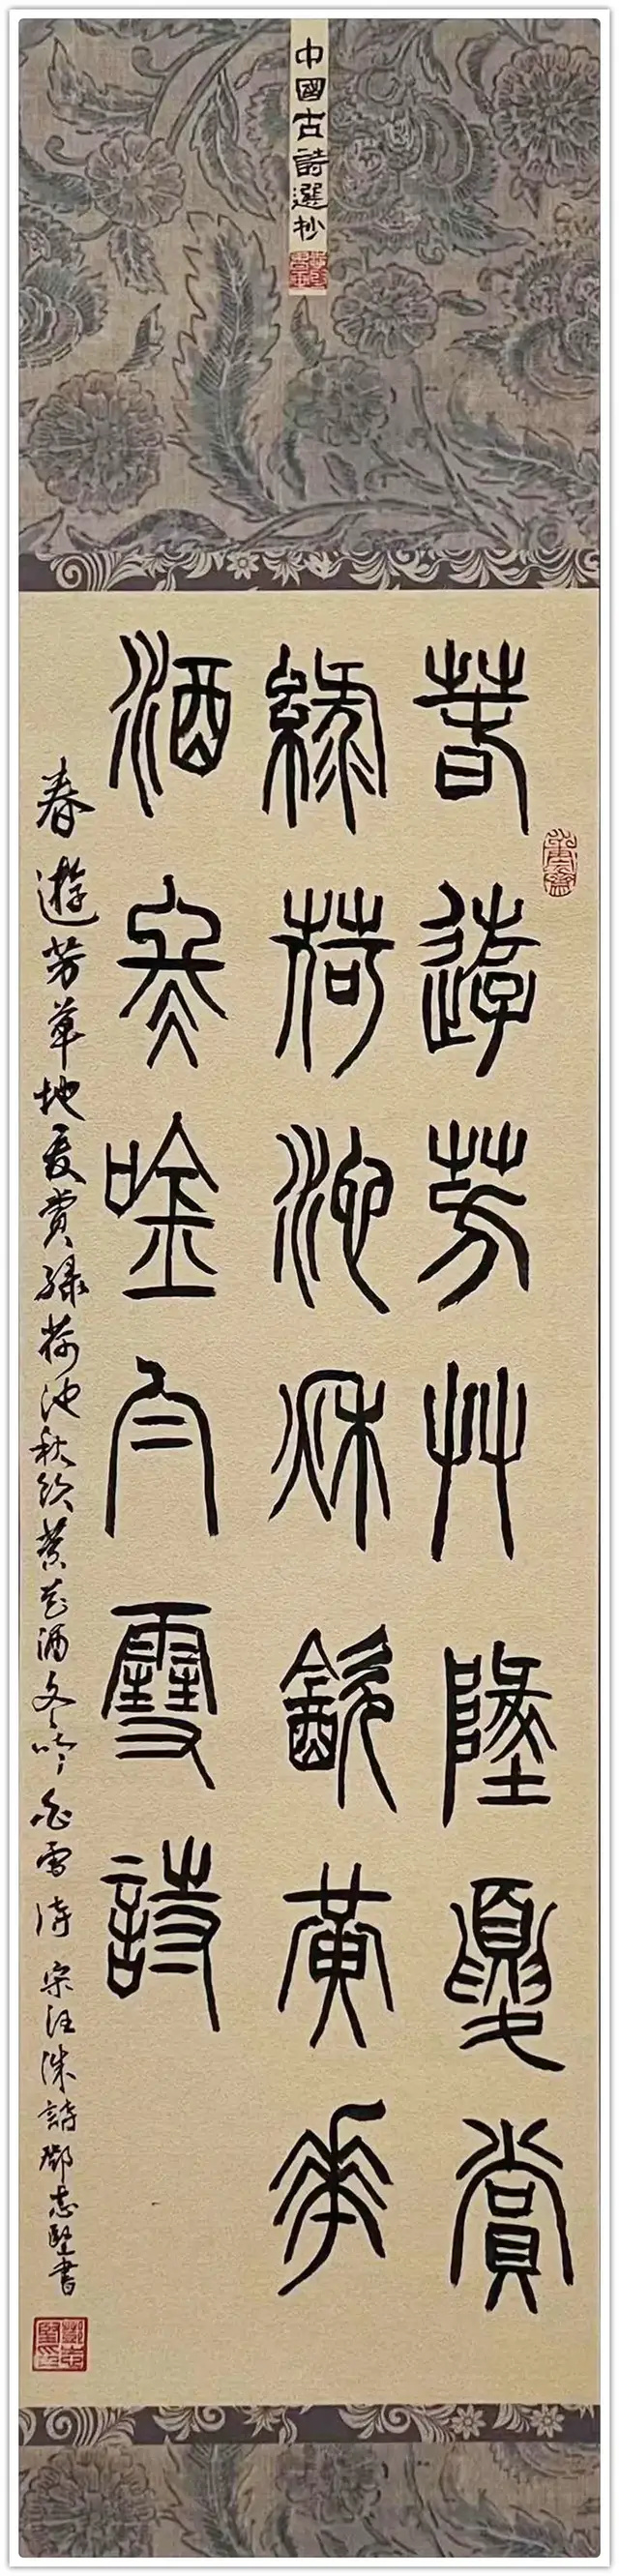 中國古詩選抄
春遊芳艸地夏賞
綠荷池秋飲黃華
酒冬吟白雪詩
春遊芳草地夏賞綠荷池秋飲黃花酒冬吟白雪詩 宋汪洙詩鄧志堅書